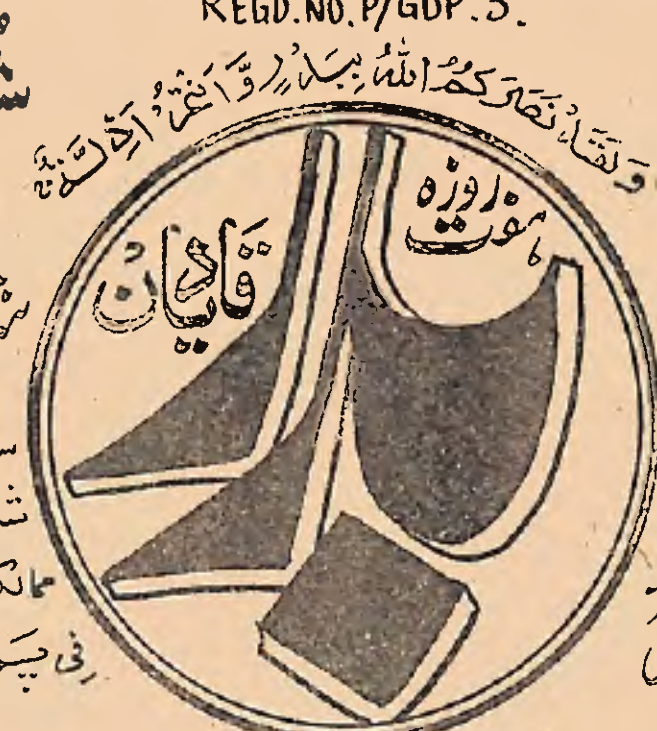 REGD.NO.P/GDP.3.
وَلَقَدْ نَصَرَكُمُ اللّٰهُ بِبَدْرٍ وَّاَنْتُمْ اَذِلَّةٌ
ہفت روزہ
بدر
قادیان
فی